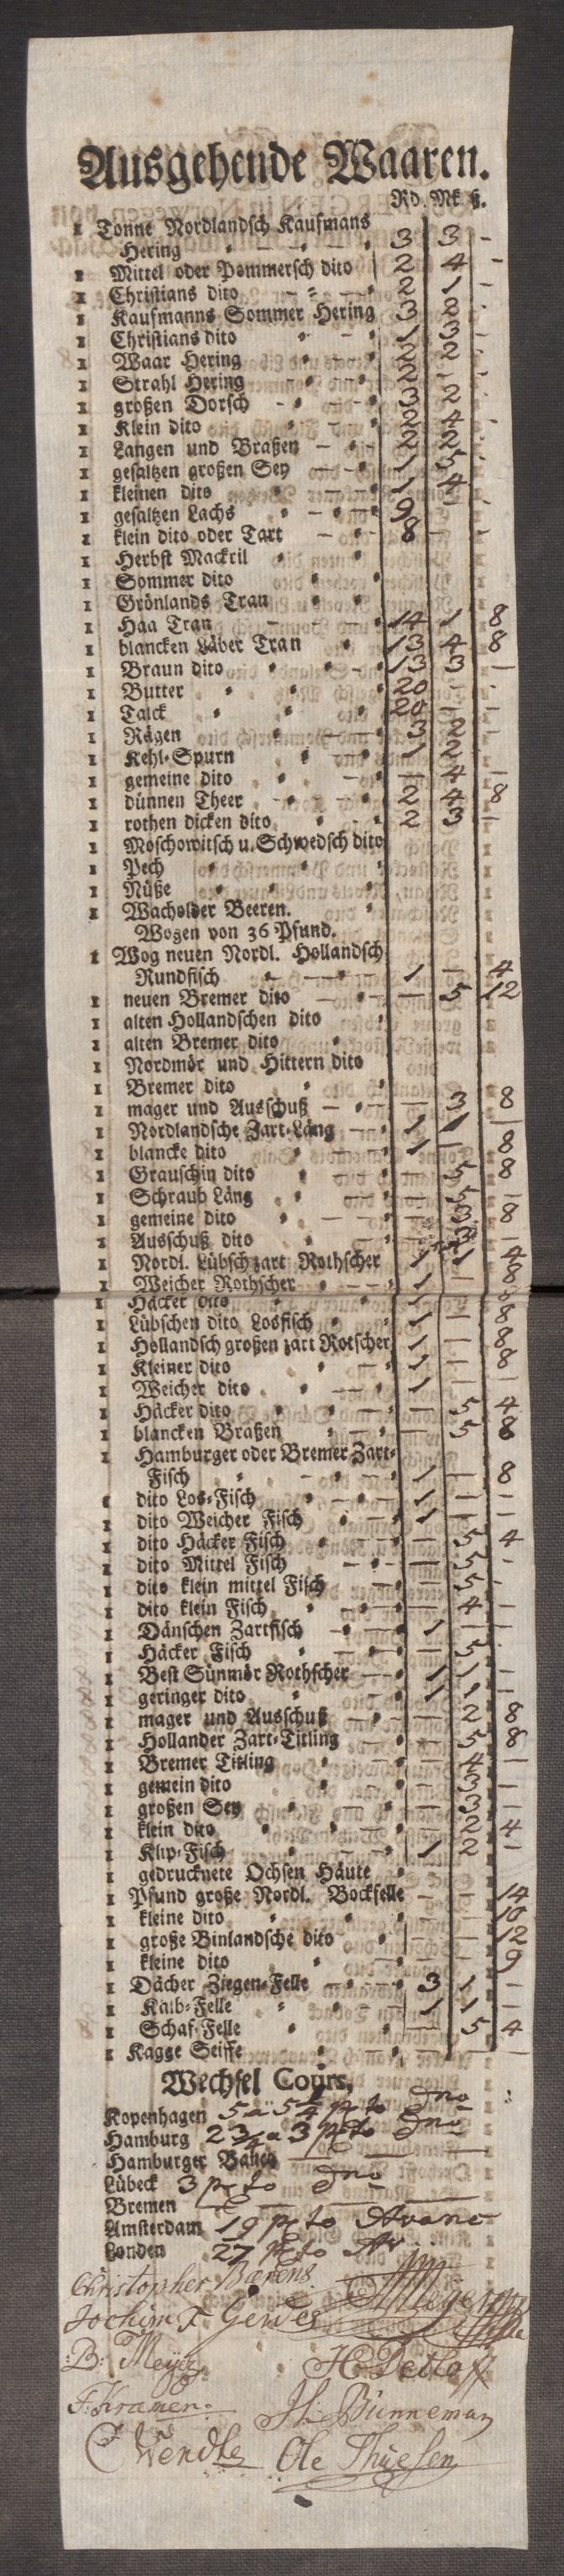 Ausgehende Waaren.
Rd. Mk ß.
1 Tonne Nordlandsch Kaufmans
Hering 3 3 -
1 Mittel oder Pommersch dito 2 4 -
1 Christians dito 2 1 -
1 Kaufmanns Sommer Hering 3 2
1 Christians dito
1 Waar Hering
1 Strahl Hering
1 großen Dorsch
1 Klein dito
1 Langen und Braßen
1 gesaltzen großen Sey
1 kleinen dito 1 4
1 gesaltzen Lachs 9 -
1 klein dito oder Tart 8 -
1 Herbst Mackril
1 Sommer dito
1 Grönlands Tran
1 Haa Tran 14 1 8
1 blancken Läber Tran 13 4 8
1 Braun dito 13 3 -
1 Butter 20 - -
1 Talck
1 Rägen 3 2 -
1 Kehl-Spurn 1 2
1 gemeine dito - 4 -
1 dünnen Theer 2 4 8
1 rothen dicken dito 2 3 -
1 Moschowitsch u. Schwedsch dito
1 Pech
1 Nüße
1 Wacholder Beeren.
Wogen von 36 Pfund.
1 Wog neuen Nordl. Hollandsch
Rundfisch 1 - 4
1 neuen Bremer dito - 5 12
1 alten Hollandschen dito
1 alten Bremer dito
1 Nordmör und Hittern dito
1 Bremer dito
1 mager und Ausschuß - 3 8
1 Nordlandsche Zart-Läng 1 1 -
1 blancke dito 1 - 8
1 Grauschin dito - 5 8
1 Schraub Läng - 5 -
1 gemeine dito - 3 8
1 Ausschuß dito
1 Nordl. Lübsch zart Rothscher 1 1 4
1 Weicher Rothscher 1 - 8
1 Häcker dito
1 Lübschen dito Losfisch 1 - 8
1 Hollandsch großen zart Rotscher 1 - 8
1 Kleiner dito 1 - 8
1 Weicher dito 1 - -
1 Häcker dito - 5 4
1 blancken Braßen - 5 8
1 Hamburger oder Bremer Zart-
Fisch 1 - 8
1 dito Los-Fisch 1 - -
1 dito Weicher Fisch 1 - -
1 dito Häcker Fisch - 5 4
1 dito Mittel Fisch - 5 -
1 dito klein mittel Fisch - 5 -
1 dito klein Fisch - 4 -
1 Dänschen Zartfisch 1 - -
1 Häcker Fisch - 5
1 Best Sünmör Rothscher 1 1 -
1 geringer dito 1 1 -
1 mager und Ausschuß - 2 8
1 Hollander Zart-Titling - 5 8
1 Bremer Titling - 4 -
1 gemein dito - 3 -
1 großen Sey - 3 -
1 klein dito - 2 4
1 Klip-Fisch 1 2 -
1 gedrucknete Ochsen Häute
1 Pfund große Nordl. Bockfelle - - 14
1 kleine dito - - 10
1 große Binlandsche dito - - 12
1 kleine dito - - 9
1 Dächer Ziegen-Felle 3 1 -
1 Kalb-Felle 1 1 -
1 Schaf-Felle - 5 4
1 Kagge Seiffe - - -
Wechsel Cours,
Kopenhagen 5 a 5¼ pcto dno
Hamburg 2¾ a 3 pcto dno
Hamburger Banco
Lübeck 3 pcto dno
Bremen
Amsterdam 19 pcto Avanc
London 27 pcto Av
Christopher Bærens
Jochim F Gerdes
B: Meyer H Detloff
F. Kramer. Bünneman
C Wendte Ole Thuesen